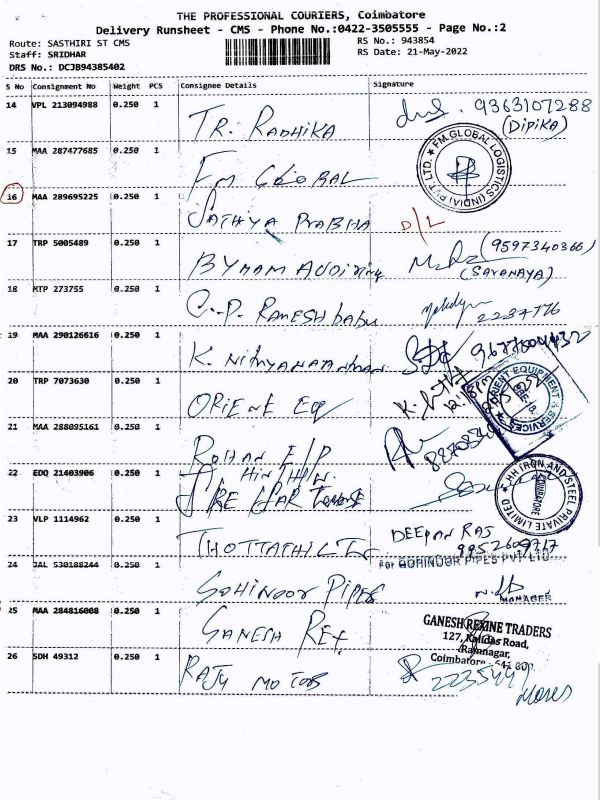 THE PROFESSIONAL COURIERS, Coimbatore
Delivery Runsheet - CMS - Phone No.:0422-3505555 - Page No.:2
Route: SASTHIRI ST CMS
Staff: SRIDHAR
DRS No.: DCJB94385402
RS No.: 943854
RS Date: 21-May-2022
S No Consignment No Weight PCS Consignee Details Signature
14 VPL 213094988 0.250 1 TR. RADHIKA 9363107288
(DIPIKA)
15 MAA 287477685 0.250 1 FM GLOBAL
FM GLOBAL LOGISTICS (INDIA) PVT LTD.
16 MAA 289695225 0.250 1 SATHYA PRABHA D/L
17 TRP 5005489 0.250 1 (9597340366)
(SAYANAYA)
18 MTP 273755 0.250 1 C.P. RAMESH babu
19 MAA 290126616 0.250 1 K.
20 TRP 7073630 0.250 1 ORIENE EQ
ORIENT EQUIPMENT & SERVICES
21 MAA 288095161 0.250 1 ROHAN E/P
22 EDQ 21403906 0.250 1 SREE HAR
HH IRON AND STEEL PRIVATE LIMITED
COIMBATORE
23 VLP 1114962 0.250 1 DEEPAN RAJ
24 JAL 530188244 0.250 1 GOHINOOR PIPES
For GOHINOOR PIPES PVT LTD
MANAGER
25 MAA 284816008 0.250 1 GANESH REX.
GANESH REXINE TRADERS
127, Kalidas Road,
Ramnagar,
Coimbatore
26 SDH 49312 0.250 1 RAJU MOTORS